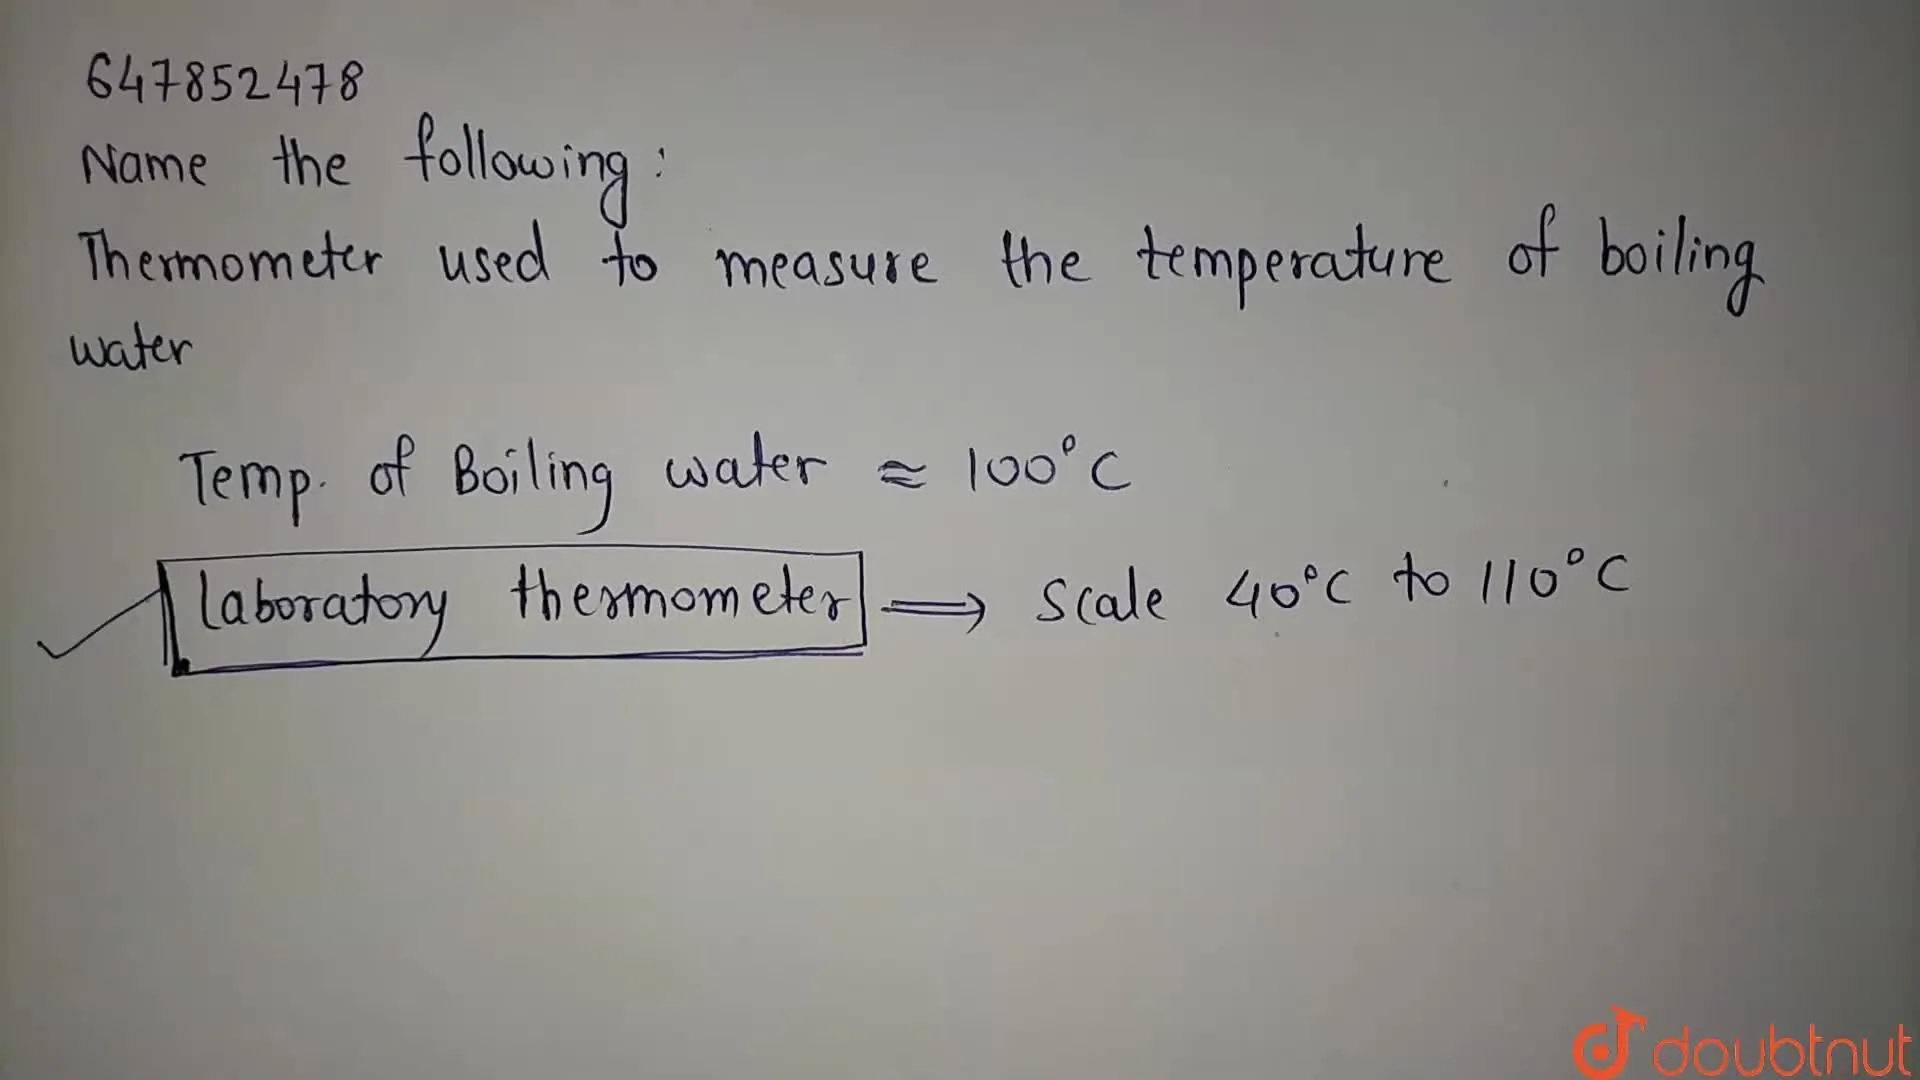 647852478
Name the following:
Thermometer used to measure the temperature of boiling
water
Temp. of Boiling water ≈ 100°C
Laboratory thermometer ⟹ Scale 40°C to 110°C
doubtnut